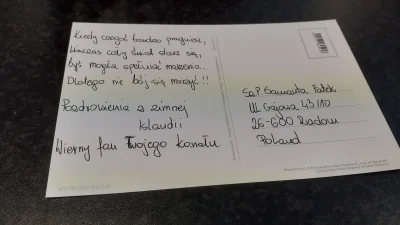 Kiedy czegoś bardzo pragniesz,
Wówczas cały świat stara się,
byś mogła spełniać marzenia.
Dlatego nie bój się marzyć!!
Pozdrowienia z zimnej
Islandii
Wierny fan Twojego kanału
Sz.P. Samanta
Ul. Gajowa 43/10
26-600 Radom
Poland